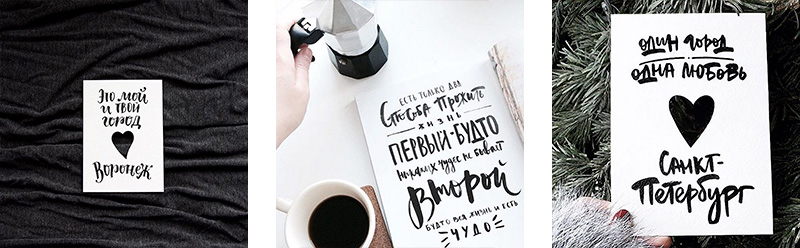 Это мой
и твой
город
Воронеж
ЕСТЬ ТОЛЬКО ДВА
Способа прожить
ЖИЗНЬ
ПЕРВЫЙ-БУДТО
никаких чудес не бывает
Второй
БУДТО ВСЯ ЖИЗНЬ И ЕСТЬ
ЧУДО
один город
одна любовь
Санкт-
Петербург